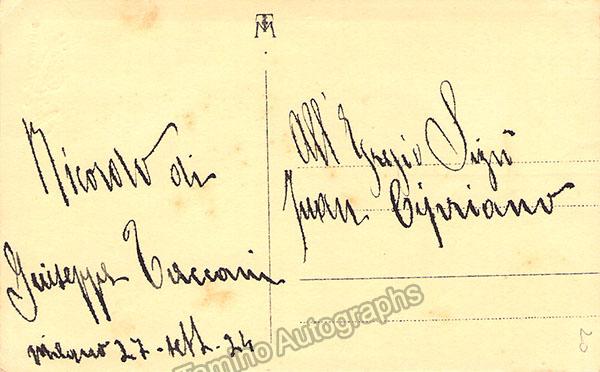 TM
Ricordo di
Giuseppe Taccani
Milano 27-sett-24
All' Egregio Sigr̄
Juan Cipriano
Tamino Autographs
20